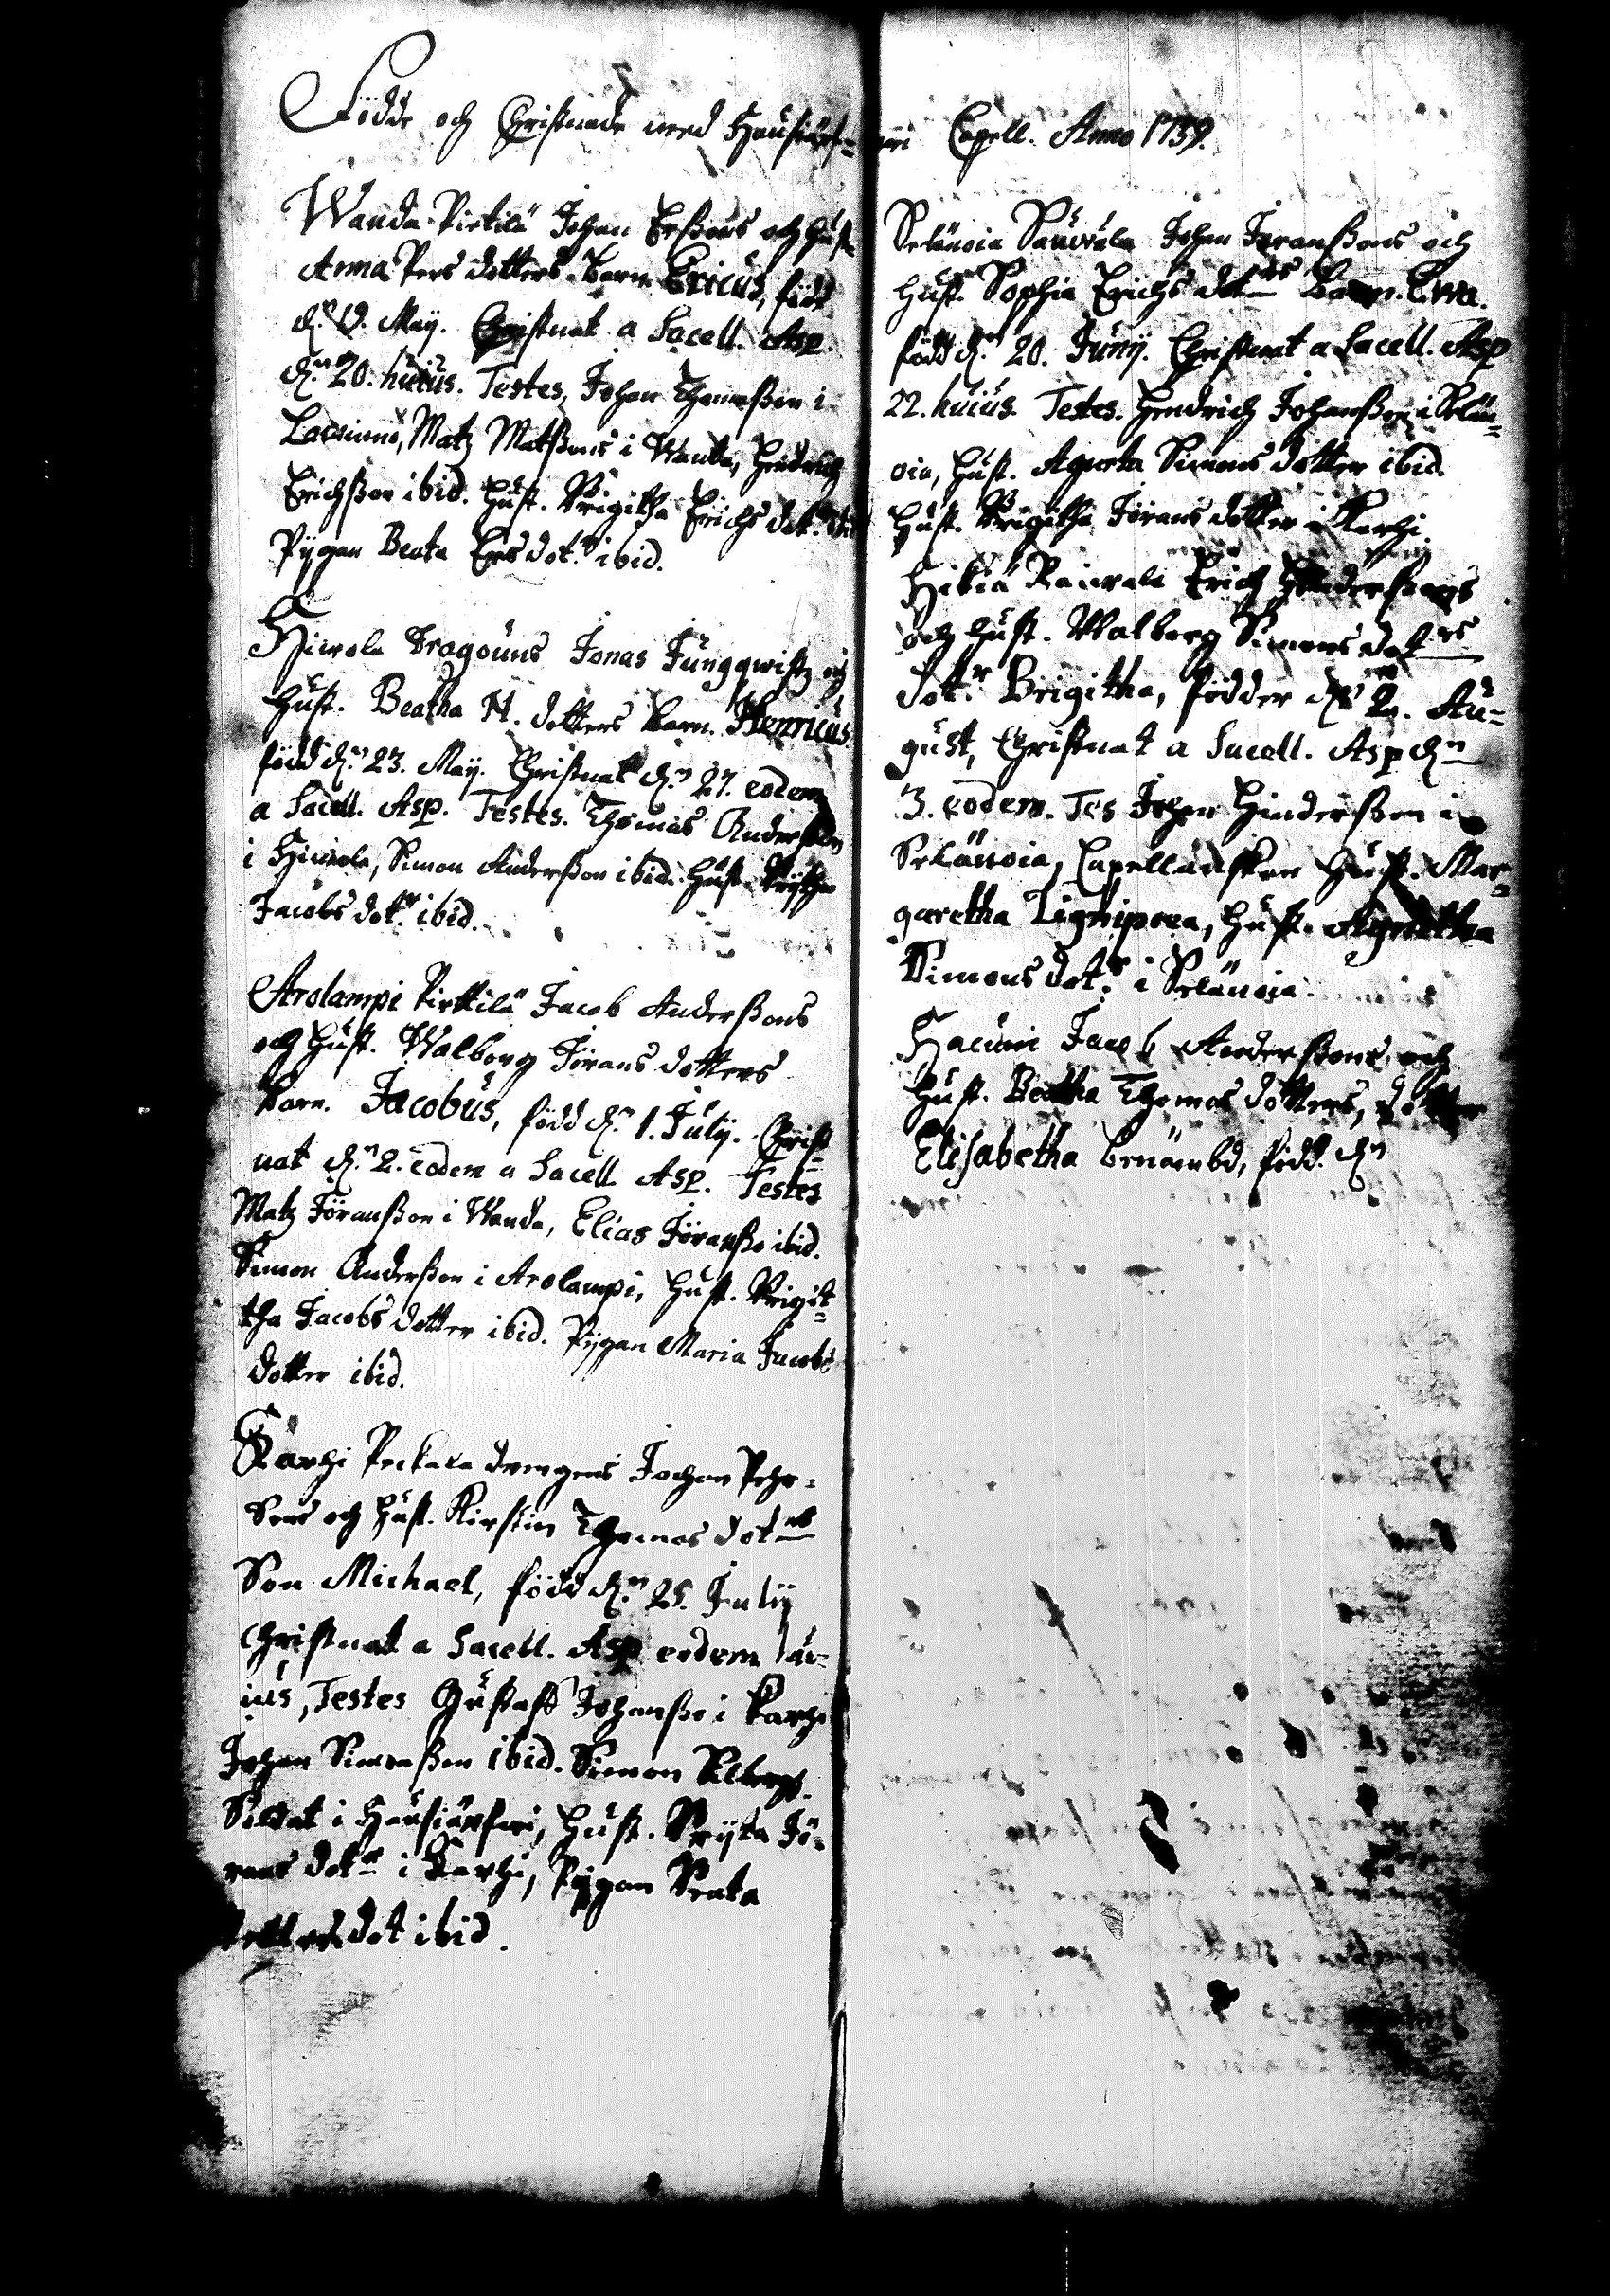 Födde och Christnade wed Hausiärf=
weri Capell. Anno 1739.
Wanda Pirtilä Johan Erßons och Hust.
Anna Pers dotters barn Ericus, född
d.n 19. Maij. Christnat a Sacell. Asp.
d.n 20. huius. Testes, Johan Thomaßon i
Matz Matßons i Wanda, Hendrich
Erichßon ibid. Hust. Brigitha Erichs dot.r ibid
Pijgan Beata Ers dot.r ibid.
Hiwola Dragouns Jonas Jungqwistz och
Hust. Beatha M. dotters barn. Henricus
född d.n 23. Maij. Christnat d.n 27. eodem
a Sacell. Asp. Testes. Thomas Anderßon
i Hiwola, Simon Anderßon ibid. Hust.
Jacobs dot.r ibid.
Arolampi Pirttilä Jacob Anderßons
och Hust. Walborg Jörans dotters
barn. Jacobus, född d.n 1. Julij. Christ
nat d.n 2. eodem a Sacell. Asp. Testes
Matz Jöranßon i Wanda, Elias Jöranßo ibid.
Simon Anderßon i Arolampi, Hust. Brigit=
tha Jacobs dotter ibid. Pijgan Maria Jacobs
dotter ibid.
Karhi Peckala drengens Johan Pehr=
sons och Hust. Kirstin Thomas dotrs
Son Michael, född d.n 25. Julij
Christnat a Sacell. Asp eodem
Testes Gustaff Johanßo i Karhi
Johan Simonßon ibid. Simon
Soldat i Hausiärfwi, Hust. Brijta Jö=
rans dotr i Karhi, Pijgan Beata
dot ibid.
Selänoia Sauvala Johan Jöranßons och
Hust. Sophia Erichs dotrs Barn. Ewa.
född d.n 20. Junij. Christnat a Sacell. Asp
22. huius. Testes. Hendrich Johanßon i Selän=
oia, Hust. Agneta Simons dotter ibid.
Hust. Brigitha Jörans dotter i Karhi.
Hikiä Raiwala Erich Hinderßons
och Hust. Walborg Simons dotrs
dot.r Brigitha, födder d.n 2. Au=
gust, Christnat a Sacell. Asp d.n
3. eodem. Tes Johan Hinderßon i
Selänoia, Capellanskan Hust. Mar=
garetha Lignipoea, Hust. Agnetha
Simons dot.r i Selänoia.
Hacuni Jacob Anderßons och
Hust. Beatha Thomas dotters, dotter
Elisabetha benämbd, född. d.n